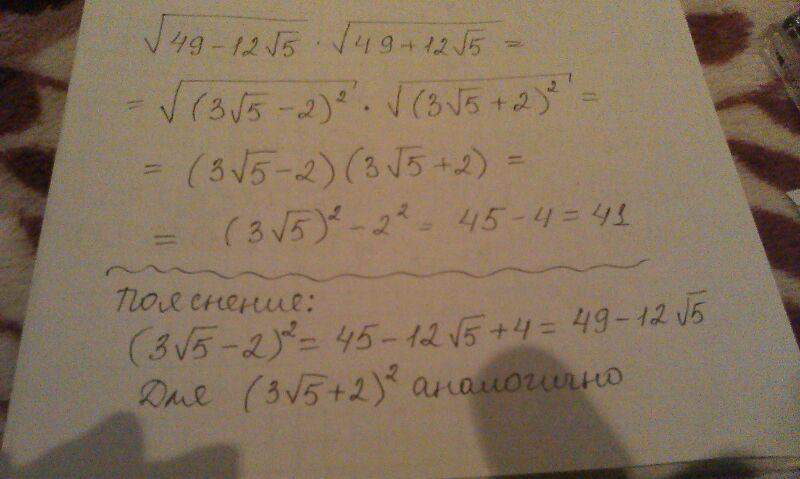 √(49-12√5) · √(49+12√5) =
= √((3√5-2)²) · √((3√5+2)²) =
= (3√5-2)(3√5+2) =
= (3√5)² - 2² = 45-4 = 41
Пояснение:
(3√5-2)² = 45-12√5+4 = 49-12√5
Для (3√5+2)² аналогично